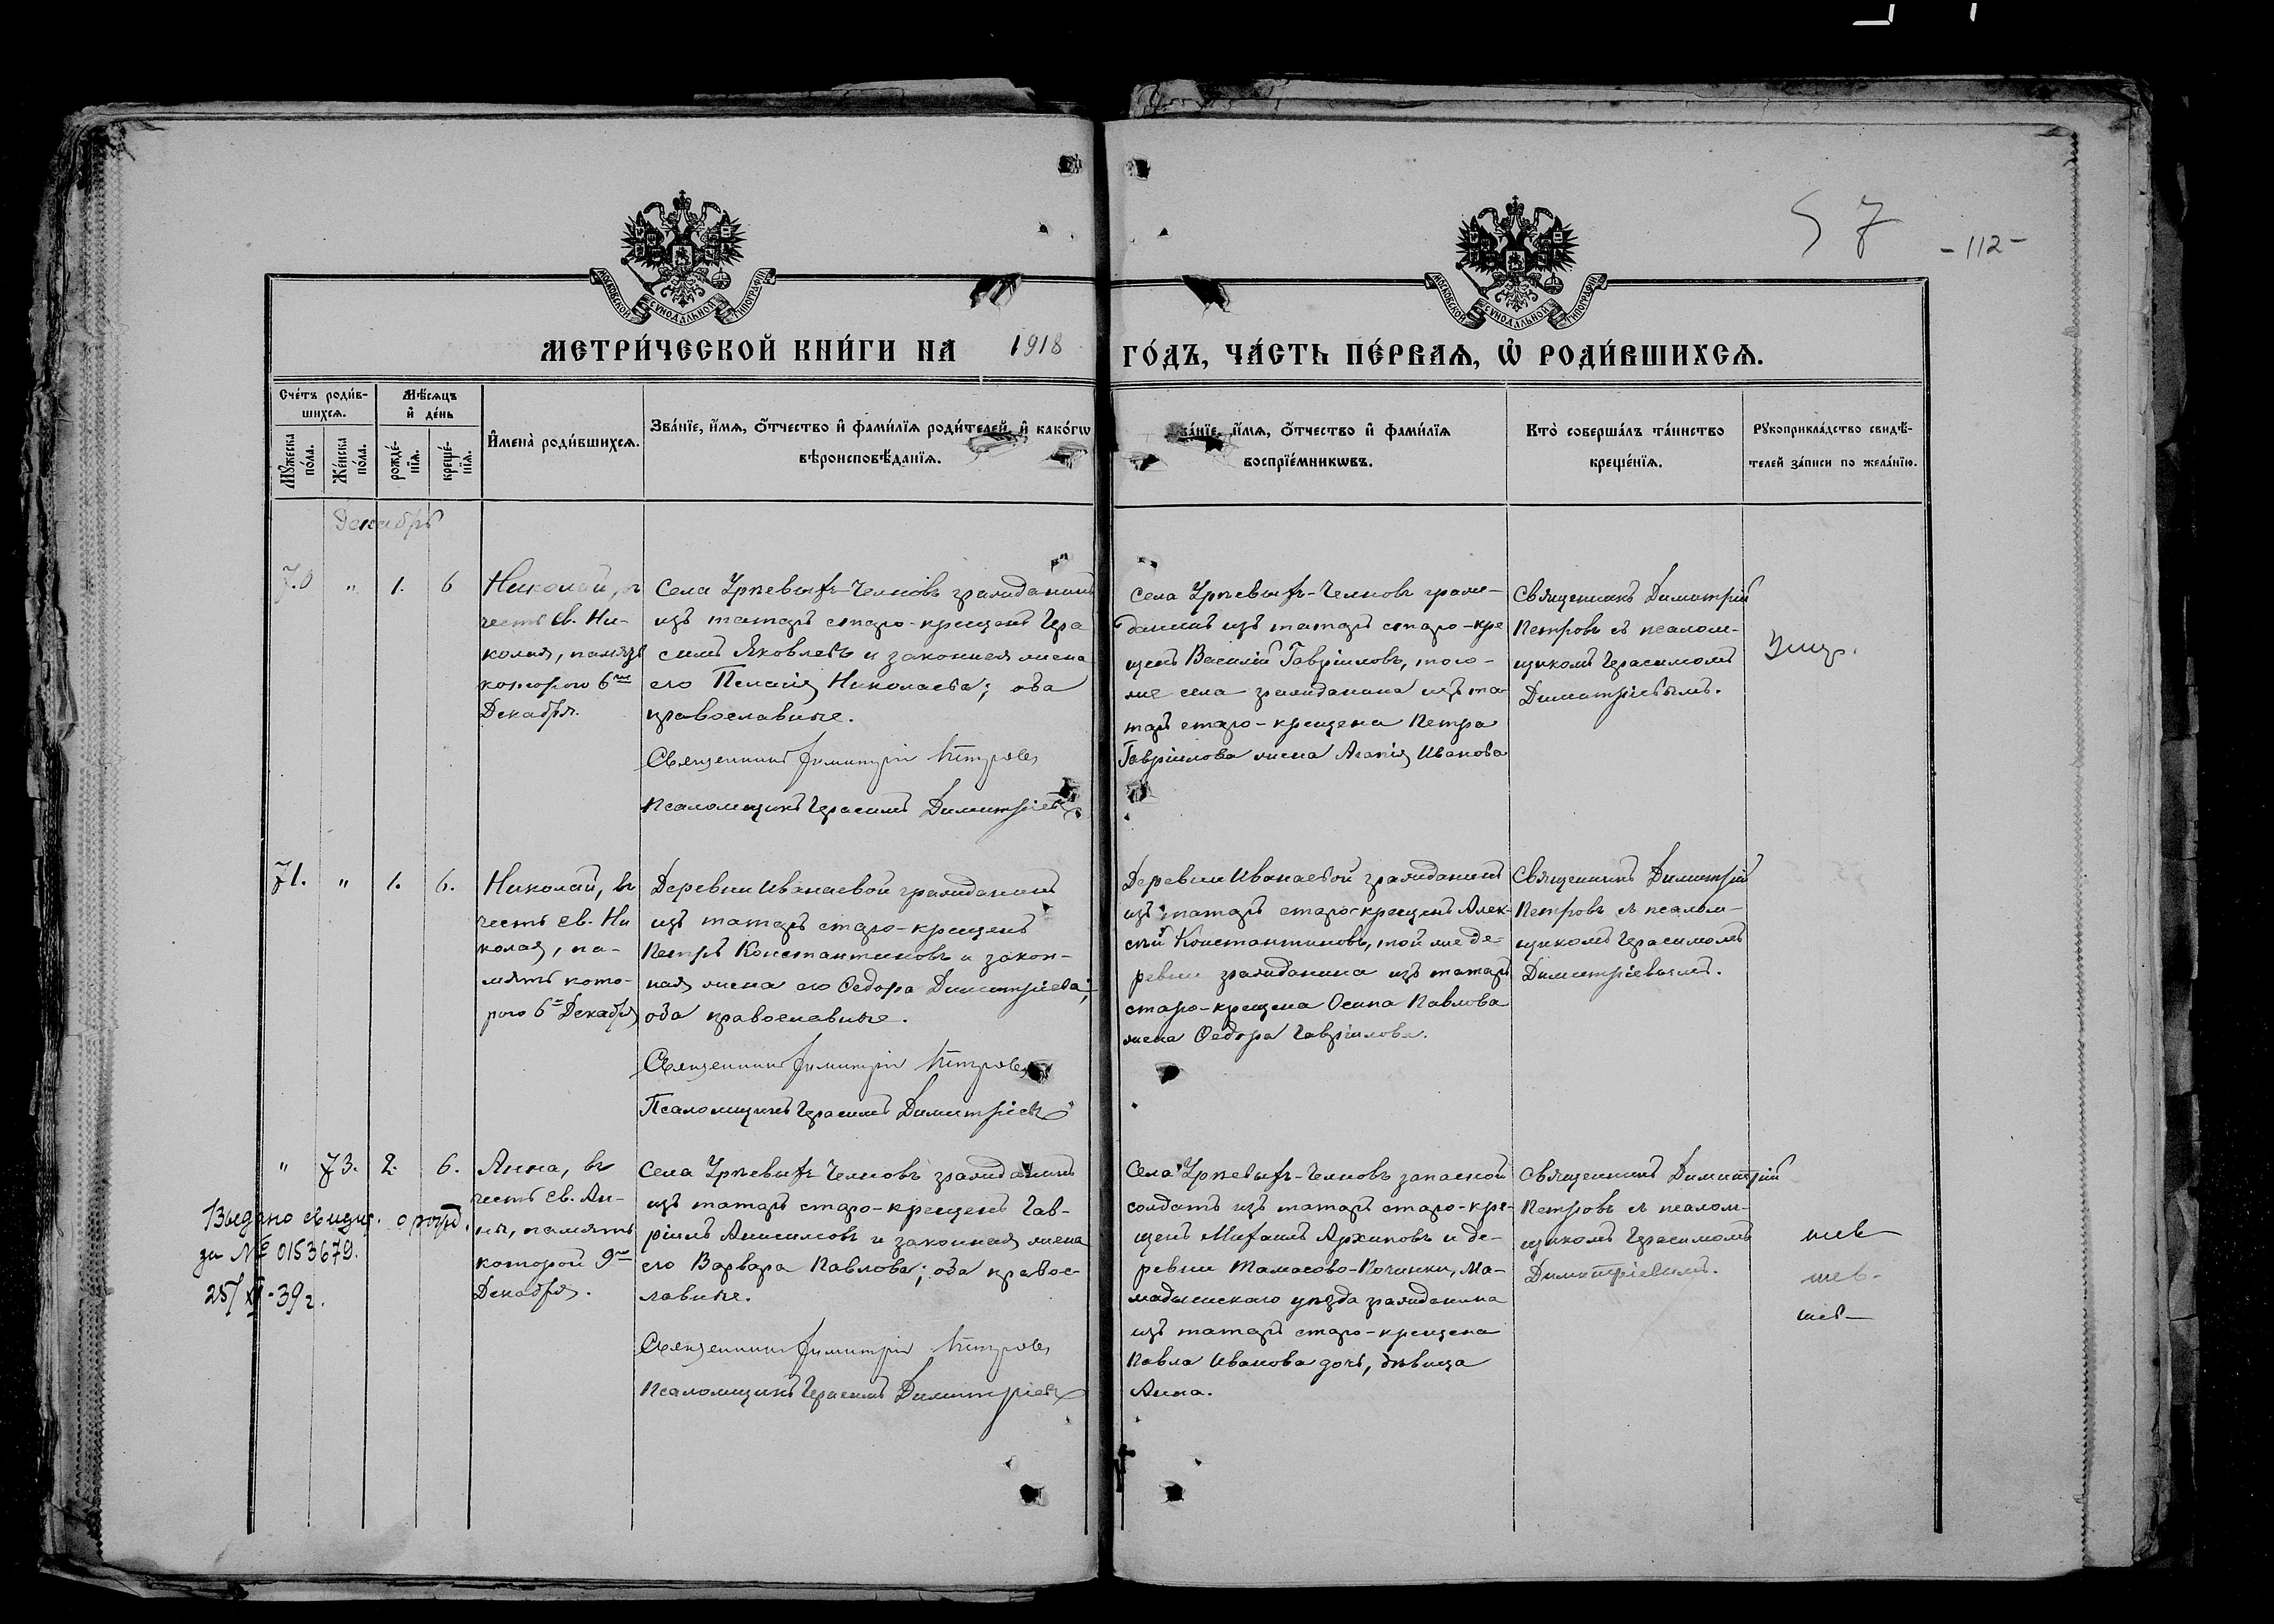 57
-112-
МОСКОВСКОЙ СѴНОДАЛЬНОЙ ТИПОГРАФІИ
МОСКОВСКОЙ СѴНОДАЛЬНОЙ ТИПОГРАФІИ
МЕТРИ́ЧЕСКОЙ КНИ́ГИ НА 1918 ГО́ДЪ, ЧА́СТЬ ПЕ́РВАѦ, Ѡ҆ РОДИ́ВШИХСѦ.
Сче́тъ роди́в-
шихсѧ.
Мѣ́сѧцъ
и҆ де́нь
Мꙋ́жеска
по́ла.
Же́нска
по́ла.
рожде́-
нїѧ.
креще́-
нїѧ.
И҆мена̀ роди́вшихсѧ.
Зва́нїе, и҆́мѧ, ѻ҆́тчество и҆ фами́лїѧ роди́телей, и҆ како́гѡ
вѣроисповѣ́данїѧ.
Зва́нїе, и҆́мѧ, ѻ҆́тчество и҆ фами́лїѧ
воспрїе́мникѡвъ.
Кто̀ соверша́лъ та́инство
креще́нїѧ.
Рꙋкоприкла́дство свидѣ́-
телей за́писи по жела́нїю.
Декабрь
70 " 1. 6
Николай, въ
честь св. Ни-
колая, память
котораго 6го
Декабря.
Села Урѣевыхъ-Челновъ гражданинъ
изъ татаръ старо-крещенъ Гера
симъ Яковлевъ и законная жена
его Пелагія Николаева; оба
православные.
Священникъ Димитрій Петровъ
Псаломщикъ Герасимъ Димитріевъ
Села Урѣевыхъ-Челновъ граж-
данинъ изъ татаръ старо-кре
щенъ Василій Гавріиловъ, того-
же села гражданина изъ та
таръ старо-крещена Петра
Гавріилова жена Агапія Иванова
Священникъ Димитрій
Петровъ съ псалом-
щикомъ Герасимомъ
Димитріевымъ.
Умер.
71. " 1. 6.
Николай, въ
честь св. Ни
колая, па-
мять кото-
раго 6го Декабря
Деревни Иванаевой гражданинъ
изъ татаръ старо-крещенъ
Петръ Константиновъ и закон-
ная жена его Ѳедора Димитріева;
оба православные.
Священникъ Димитрій Петровъ
Псаломщикъ Герасимъ Димитріевъ
Деревни Иванаевой гражданинъ
изъ татаръ старо-крещенъ Алек-
сѣй Константиновъ, той же де-
ревни гражданина изъ татаръ
старо-крещена Осипа Павлова
жена Ѳедора Гавріилова.
Священникъ Димитрій
Петровъ съ псалом-
щикомъ Герасимомъ
Димитріевымъ.
" 73. 2. 6.
Анна, въ
честь св. Ан-
ны, память
которой 9го
Декабря.
Выдано свидет. о рожд.
за № 0153679.
25/XI-39 г.
Села Урѣевыхъ-Челновъ гражданинъ
изъ татаръ старо-крещенъ Гав-
ріилъ Анисимовъ и законная жена
его Варвара Павлова; оба правос-
лавные.
Священникъ Димитрій Петровъ
Псаломщикъ Герасимъ Димитріевъ
Села Урѣевыхъ-Челновъ запасной
солдатъ изъ татаръ старо-кре-
щенъ Михаилъ Архиповъ и де-
ревни Тамасово-Починки, Ма-
мадышскаго уѣзда гражданина
изъ татаръ старо-крещена
Павла Иванова дочь, дѣвица
Анна.
Священникъ Димитрій
Петровъ съ псалом-
щикомъ Герасимомъ
Димитріевымъ.